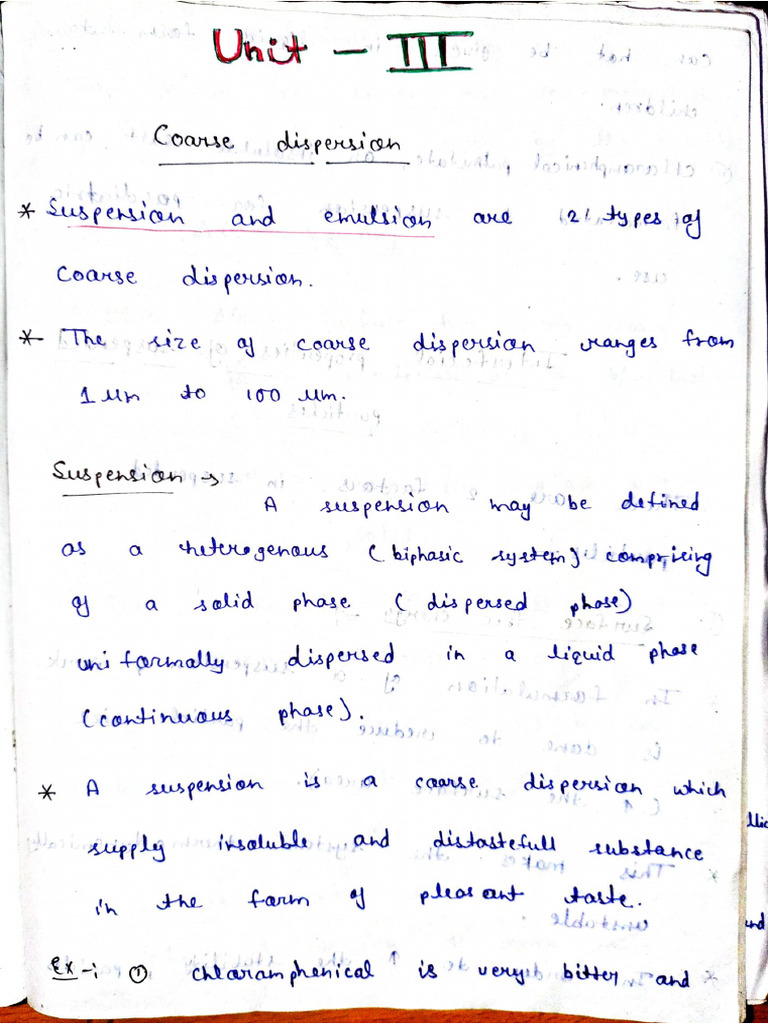 Unit - III
Coarse dispersion
* Suspension and emulsion are 2 types of
coarse dispersion.
* The size of coarse dispersion ranges from
1 um to 100 um.
Suspension →
A suspension may be defined
as a heterogenous (biphasic system) compricing
of a solid phase (dispersed phase)
uniformally dispersed in a liquid phase
(continuous phase).
* A suspension is a coarse dispersion which
supply insoluble and distastefull substance
in the form of pleasant taste.
Ex -: ① chloramphenical is very bitter and